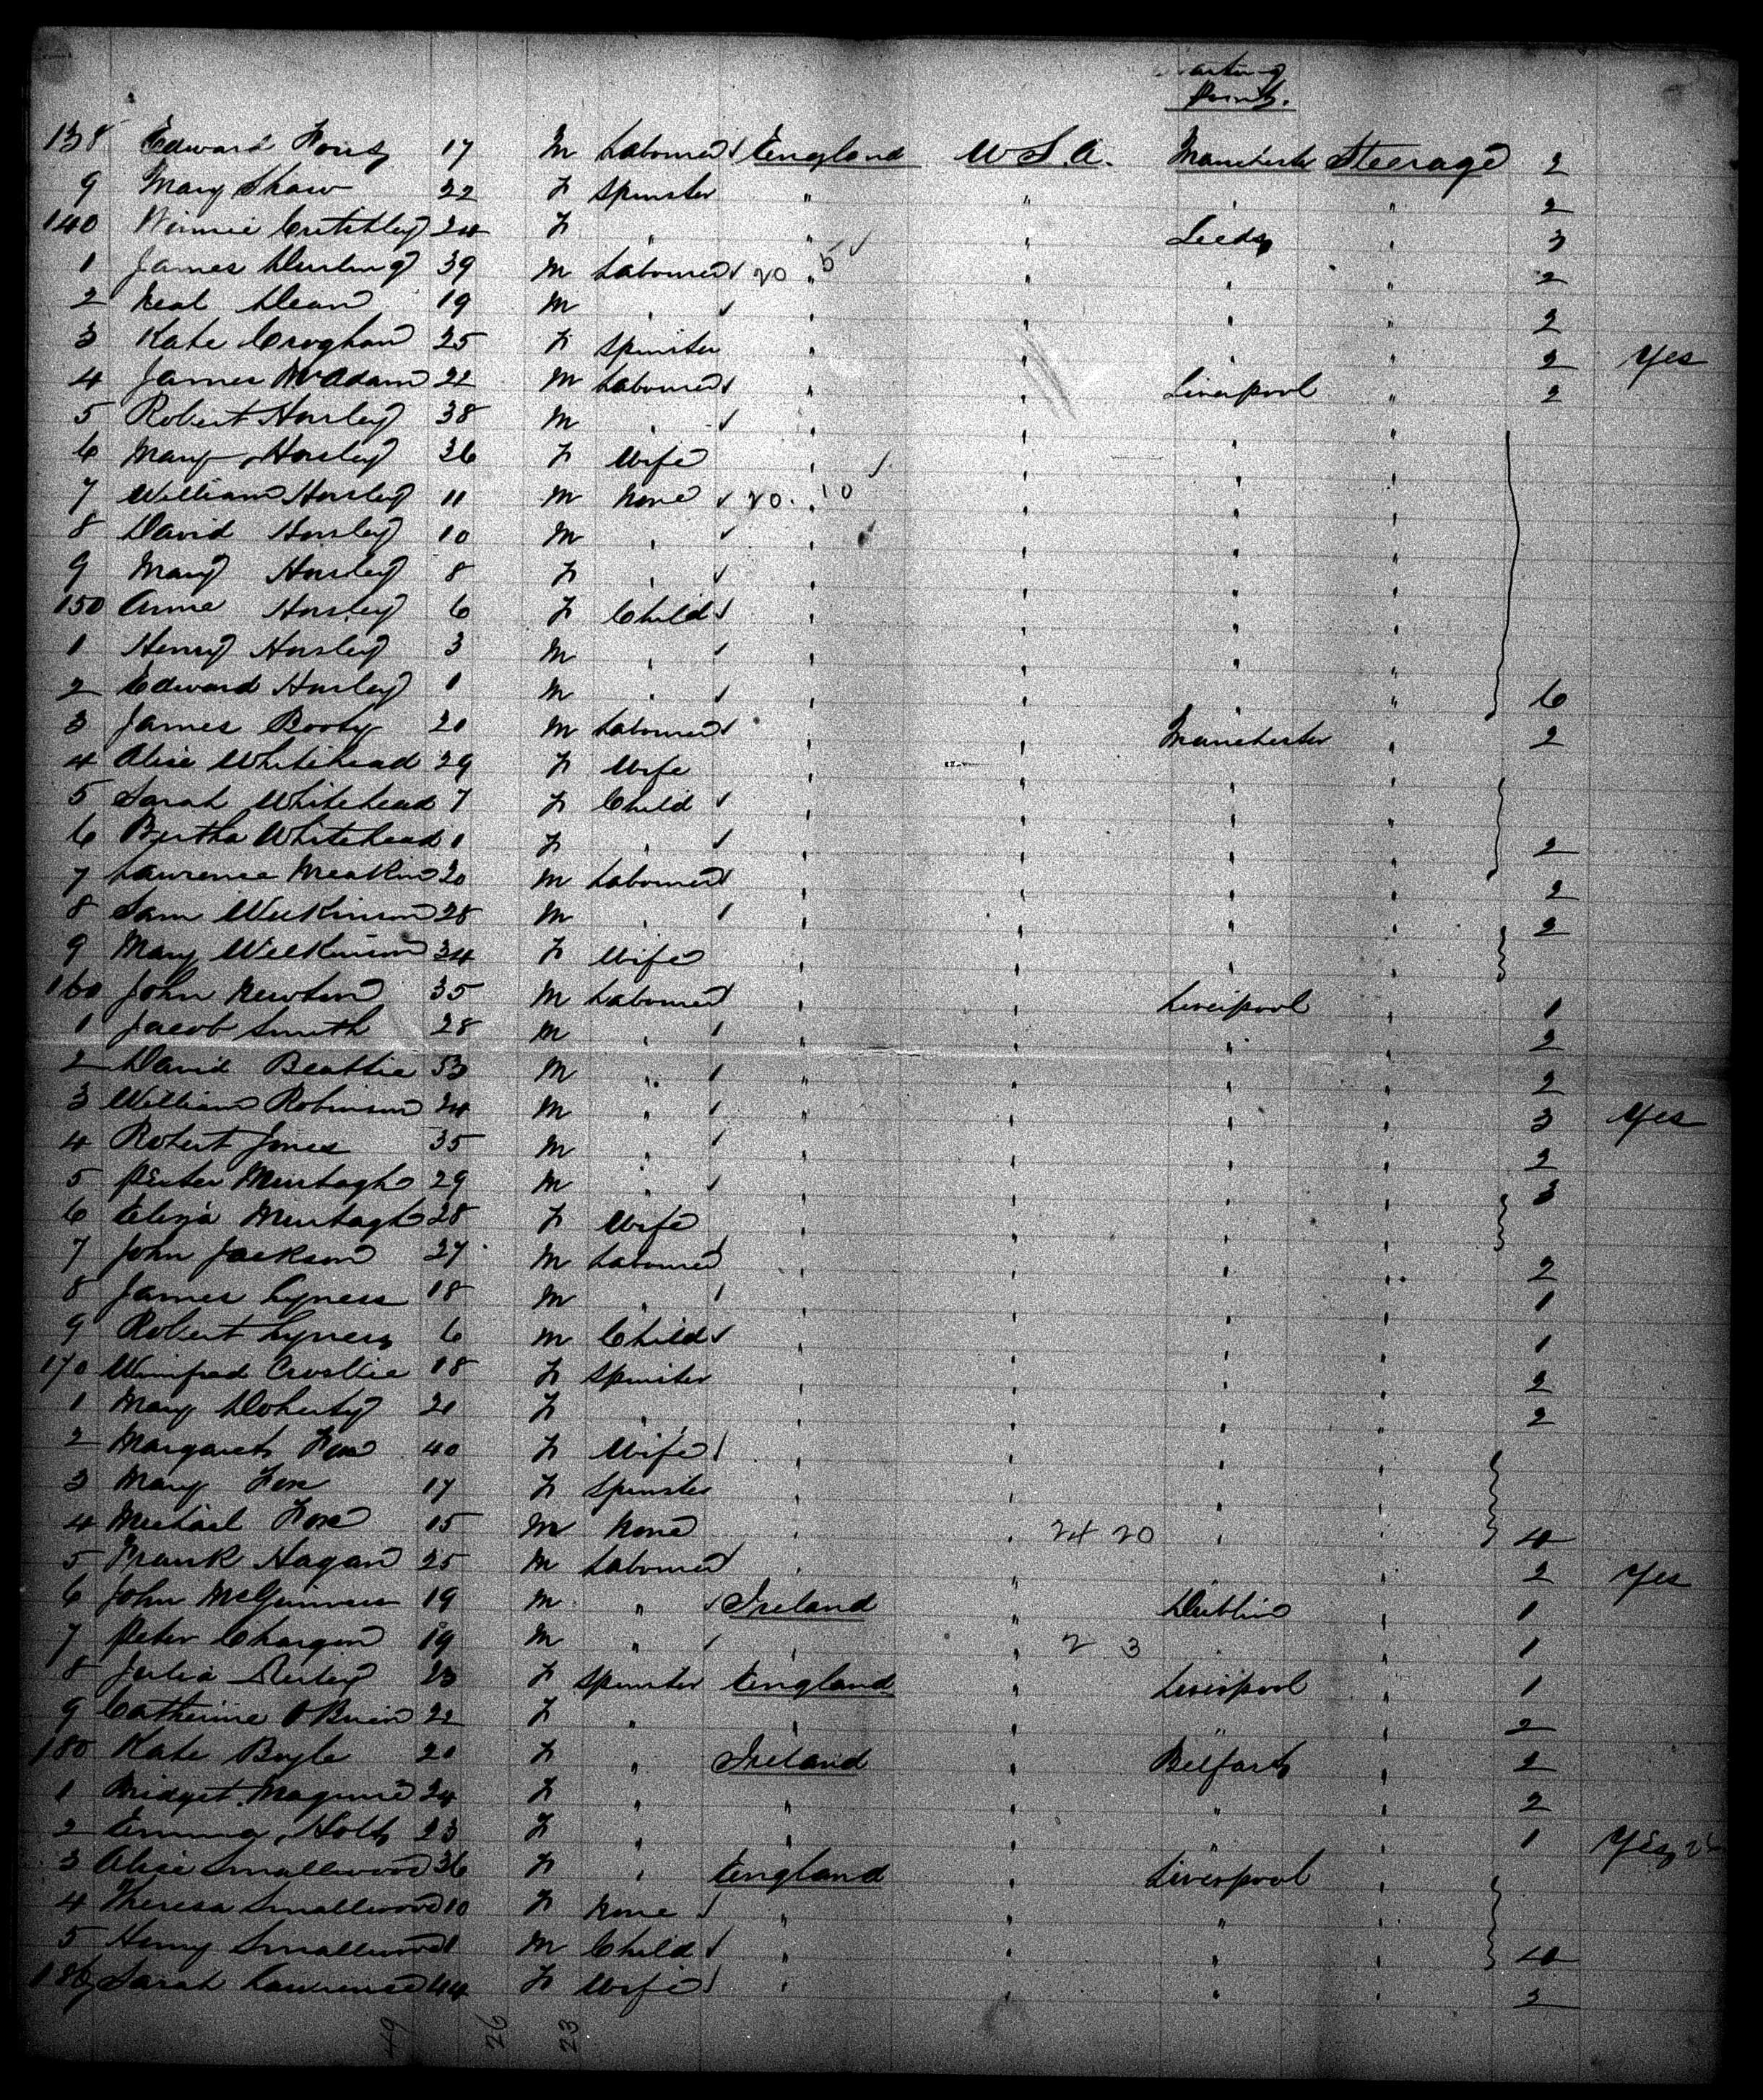 Starting
Point.
138 Edward 17 M Labourer England U.S.A. Manchester Steerage 2
9 Mary Shaw 22 F Spinster " " " " 2
140 Winnie Critchley 24 F " " " Leeds " 3
1 James 39 M Labourer 20 5 " " " " 2
2 Neal Dean 19 M " " " " " 2
3 Kate Croghan 25 F Spinster " " " " 2 Yes
4 James McAdam 22 M Labourer " " Liverpool " 2
5 Robert Horsley 38 M " " " " "
6 Mary Horsley 36 F Wife " " " "
7 William Horsley 11 M None 20 10 " " " "
8 David Horsley 10 M " " " " "
9 Mary Horsley 8 F " " " " "
150 Annie Horsley 6 F Child " " " "
1 Henry Horsley 3 M " " " " "
2 Edward Horsley 1 M " " " " " 6
3 James Booty 20 M Labourer " " Manchester " 2
4 Alice Whitehead 29 F Wife " " " "
5 Sarah Whitehead 7 F Child " " " "
6 Bertha Whitehead 1 F " " " " " 2
7 Lawrence Meakin 20 M Labourer " " " " 2
8 Sam Wilkinson 28 M " " " " " 2
9 Mary Wilkinson 34 F Wife " " " "
160 John Newton 35 M Labourer " " Liverpool " 1
1 Jacob Smith 28 M " " " " " 2
2 David Beattie 53 M " " " " " 2
3 William Robinson 24 M " " " " " 3 Yes
4 Robert Jones 35 M " " " " " 2
5 Peter Murtagh 29 M " " " " " 3
6 Eliza Murtagh 28 F Wife " " " "
7 John Jackson 27 M Labourer " " " " 2
8 James Lyness 18 M " " " " " 1
9 Robert Lyness 6 M Child " " " " 1
170 Winifred Crosbie 18 F Spinster " " " " 2
1 Mary Doherty 20 F " " " " " 2
2 Margaret Fox 40 F Wife " " " "
3 Mary Fox 17 F Spinster " " " "
4 Michael Fox 15 M None " " 24 20 " " 4
5 Frank Hagan 25 M Labourer " " " " 2 Yes
6 John McGinness 19 M " Ireland " Dublin " 1
7 Peter 19 M " " " 2 3 " " 1
8 Julia 23 F Spinster England " Liverpool " 1
9 Catherine O'Brien 22 F " " " " " 2
180 Kate Boyle 20 F " Ireland " Belfast " 2
1 Bridget Maguire 24 F " " " " " 2
2 Emma Holt 23 F " " " " " 1 Yes
3 Alice Smallwood 36 F " England " Liverpool "
4 Theresa Smallwood 10 F None " " " "
5 Henry Smallwood M Child " " " " 4
186 Sarah Lawrence 44 F Wife " " " " 2
49 26 23